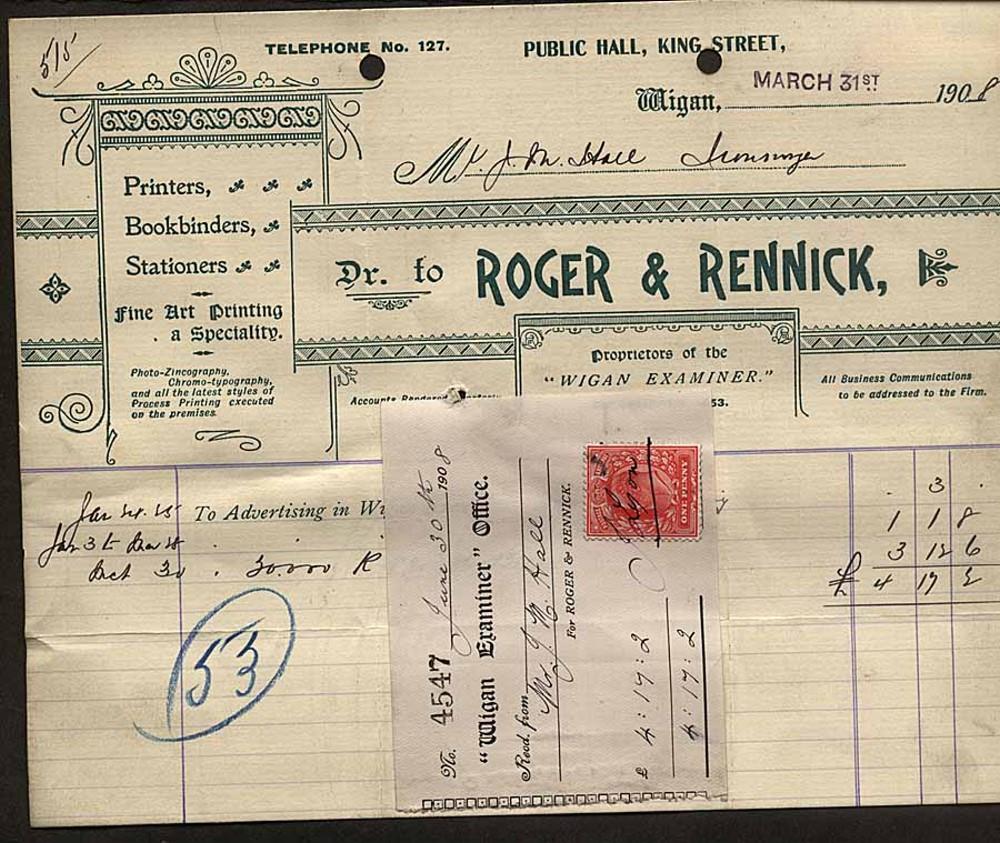 515
TELEPHONE No. 127.
PUBLIC HALL, KING STREET,
Wigan, MARCH 31ST 1908
Mr. J. M. Hall
Printers,
Bookbinders,
Stationers
Fine Art Printing
a Speciality.
Photo-Zincography,
Chromo-typography,
and all the latest styles of
Process Printing executed
on the premises.
Dr. to ROGER & RENNICK,
Proprietors of the
"WIGAN EXAMINER."
Accounts Rendered
53.
All Business Communications
to be addressed to the Firm.
To Advertising in Wi
. 3 .
1 1 8
3 12 6
£ 4 17 2
53
No. 4547 June 30th 1908
"Wigan Examiner" Office.
Recd. from Mr. J. M. Hall
For ROGER & RENNICK.
£ 4 : 17 : 2
4 : 17 : 2
ONE PENNY